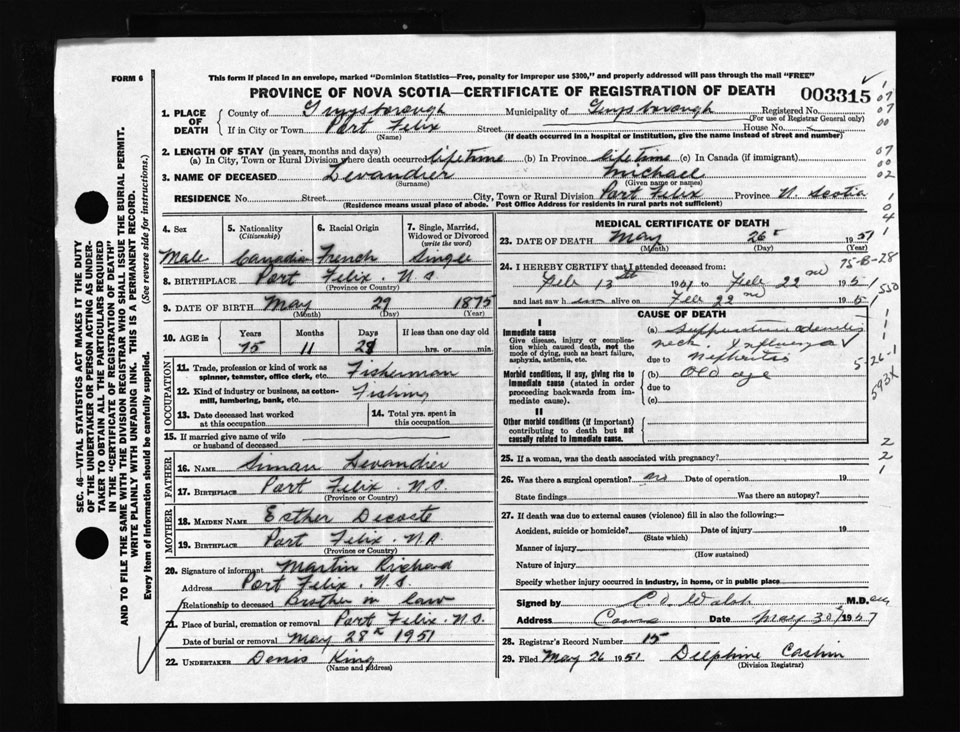 FORM 6
This form if placed in an envelope, marked "Dominion Statistics—Free, penalty for improper use $300," and properly addressed will pass through the mail "FREE"
PROVINCE OF NOVA SCOTIA—CERTIFICATE OF REGISTRATION OF DEATH 003315
1. PLACE OF DEATH
County of Guysborough Municipality of Guysborough Registered No.
(For use of Registrar General only)
If in City or Town Port Felix Street House No.
(Name) (If death occurred in a hospital or institution, give the name instead of street and number)
2. LENGTH OF STAY (in years, months and days)
(a) In City, Town or Rural Division where death occurred life time (b) In Province life time (c) In Canada (if immigrant)
3. NAME OF DECEASED Levandier Michael
(Surname) (Given name or names)
RESIDENCE No. Street City, Town or Rural Division Port Felix Province N. Scotia
(Residence means usual place of abode. Post Office Address for residents in rural parts not sufficient)
4. Sex Male
5. Nationality (Citizenship) Canadian
6. Racial Origin French
7. Single, Married, Widowed or Divorced (write the word) Single
8. BIRTHPLACE Port Felix. N.S.
(Province or County)
9. DATE OF BIRTH May 29 1875
(Month) (Day) (Year)
10. AGE in Years Months Days If less than one day old
75 11 28 hrs. or min.
OCCUPATION
11. Trade, profession or kind of work as spinner, teamster, office clerk, etc. Fisherman
12. Kind of industry or business, as cotton-mill, lumbering, bank, etc. Fishing
13. Date deceased last worked at this occupation
14. Total yrs. spent in this occupation
15. If married give name of wife or husband of deceased
FATHER
16. NAME Siman Levandier
17. BIRTHPLACE Port Felix. N.S.
(Province or County)
MOTHER
18. MAIDEN NAME Esther Decoste
19. BIRTHPLACE Port Felix. N.S.
(Province or County)
20. Signature of informant Martin Richard
Address Port Felix. N.S.
Relationship to deceased Brother in law
21. Place of burial, cremation or removal Port Felix. N.S.
Date of burial or removal May 28th 1951
22. UNDERTAKER Denis King
(Name and address)
MEDICAL CERTIFICATE OF DEATH
23. DATE OF DEATH May 26 1951
(Month) (Day) (Year)
24. I HEREBY CERTIFY that I attended deceased from: 75-B-28
Feb 13th 1951 to Feb 22nd 1951
and last saw h im alive on Feb 22nd 1951
CAUSE OF DEATH
I
Immediate cause
Give disease, injury or complication which caused death, not the mode of dying, such as heart failure, asphyxia, asthenia, etc.
(a) neck. Influenza
due to Nephritis
Morbid conditions, if any, giving rise to immediate cause (stated in order proceeding backwards from immediate cause).
(b) Old age
due to
(c)
II
Other morbid conditions (if important) contributing to death but not causally related to immediate cause.
25. If a woman, was the death associated with pregnancy?
26. Was there a surgical operation? no Date of operation 19
State findings Was there an autopsy?
27. If death was due to external causes (violence) fill in also the following:—
Accident, suicide or homicide? Date of injury 19
(State which)
Manner of injury
(How sustained)
Nature of injury
Specify whether injury occurred in industry, in home, or in public place
Signed by C. D. Walsh M.D.
Address Canso Date May 30 1951
28. Registrar's Record Number 15
29. Filed May 26 1951 Delphine Cashin
(Division Registrar)
SEC. 46—VITAL STATISTICS ACT MAKES IT THE DUTY
OF THE UNDERTAKER OR PERSON ACTING AS UNDER-
TAKER TO OBTAIN ALL THE PARTICULARS REQUIRED
IN THE "CERTIFICATE OF REGISTRATION OF DEATH"
AND TO FILE THE SAME WITH THE DIVISION REGISTRAR WHO SHALL ISSUE THE BURIAL PERMIT.
WRITE PLAINLY WITH UNFADING INK. THIS IS A PERMANENT RECORD.
Every item of information should be carefully supplied. (See reverse side for instructions.)
07
07
00
07
00
02